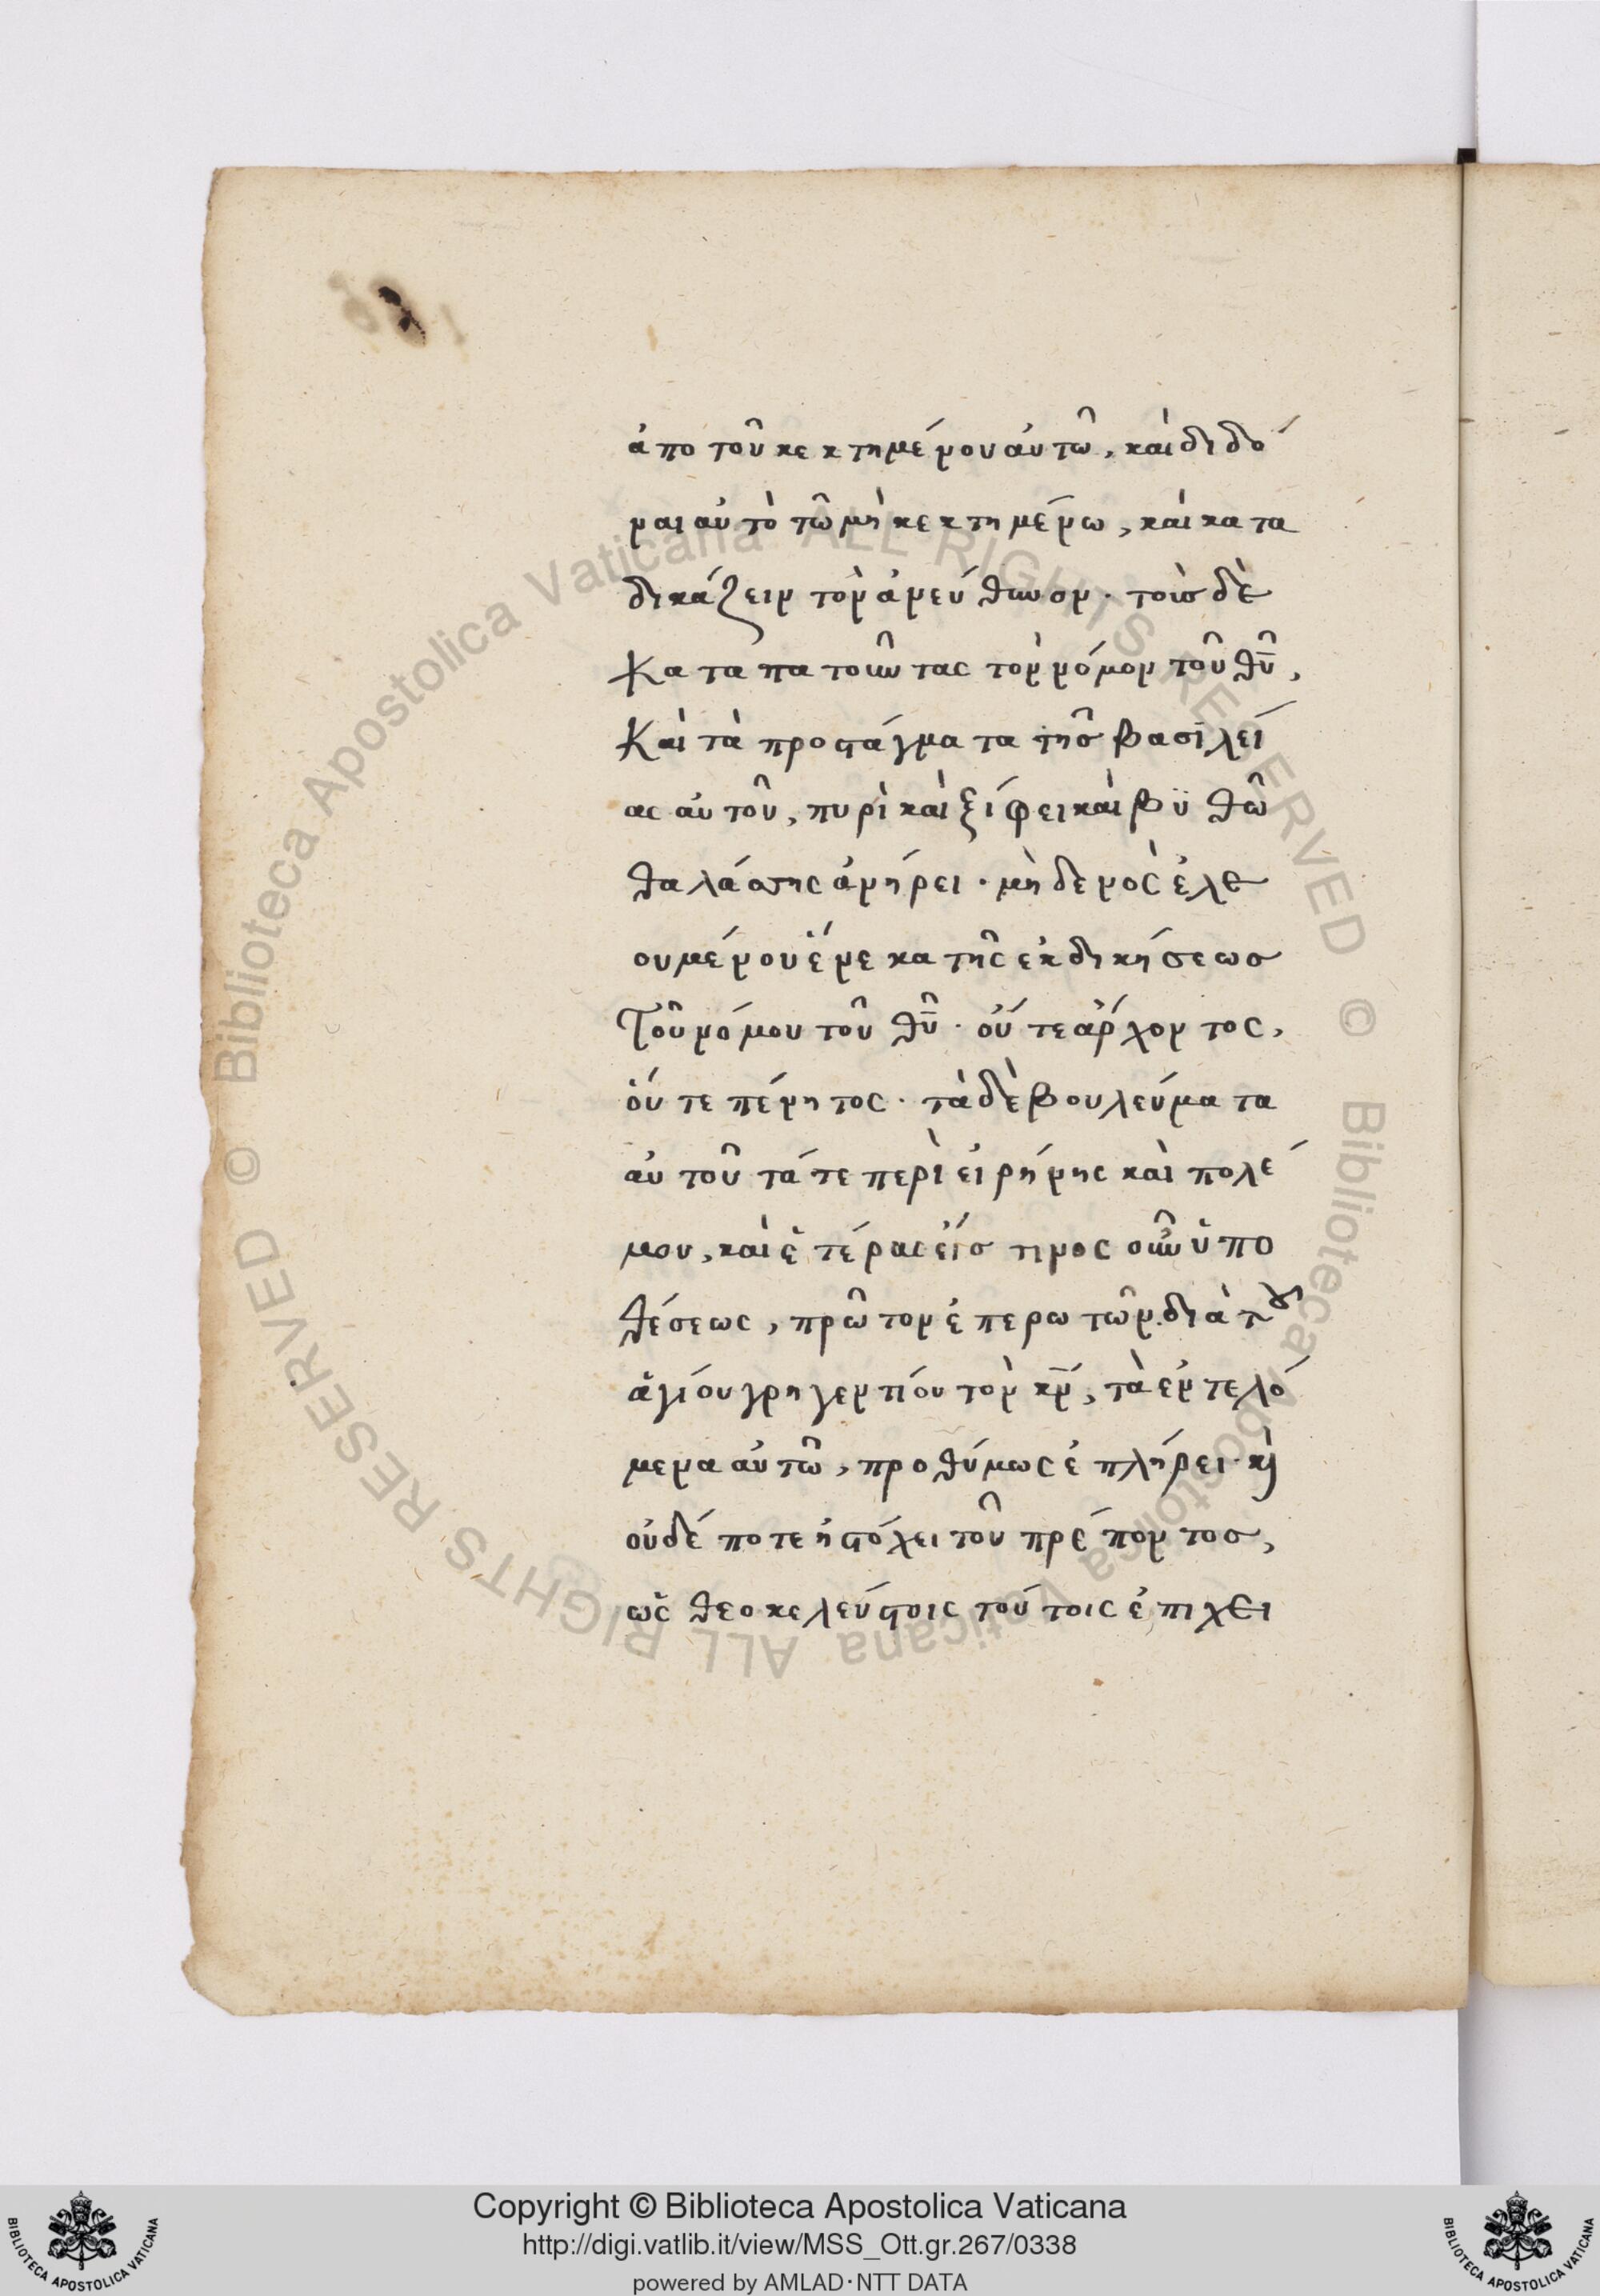 ἀπο τοῦ κεκτημένου αὐτῶ, καὶ διδό
ναι αὐτὸ τῶ μὴ κεκτημένω, καὶ κατα
δικάζειν τὸν ἀνεύθυνον. τοὺσ δὲ
καταπατοῦντας τὸν νόμον τοῦ θῦ,
Καὶ τὰ προστάγματα τῆσ βασιλεί
ας αὐτοῦ, πυρὶ καὶ ξίφει καὶ βϋθῶ
θαλάσσης ἀνήρει. μὴδενὸς ἐλε
ουμένου ἕνεκα τῆς ἐκδικήσεωσ
Τοῦ νόμου τοῦ θῦ. οὔτε ἄρχοντος,
οὔτε πένητος. τὰ δὲ βουλεύματα
αὐτοῦ τά τε περὶ εἰρήνης καὶ πολέ
μου, καὶ ἑτέρας εἵσ τινος οὖν ὑπο
θέσεως, πρῶτον ἐπερωτῶν διὰ τοῦ
ἁγίου γρηγεντίου τὸν κν, τὰ ἐντελό
μενα αὐτῶ, προθύμως ἐπλήρει. κὶ
οὐδέποτε ἠστόχει τοῦ πρέποντοσ,
ὡς θεοκελεύστοις τούτοις ἐπιχει
Copyright © Biblioteca Apostolica Vaticana
http://digi.vatlib.it/view/MSS_Ott.gr.267/0338
powered by AMLAD·NTT DATA